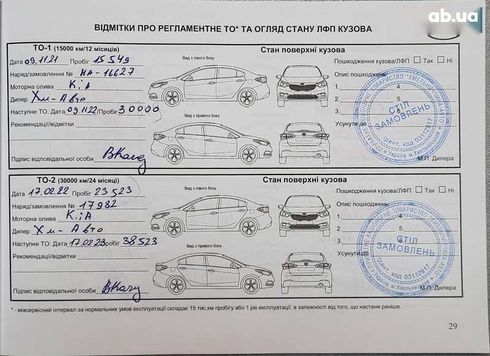 ab.ua
ВІДМІТКИ ПРО РЕГЛАМЕНТНЕ ТО* ТА ОГЛЯД СТАНУ ЛФП КУЗОВА
ТО-1 (15000 км/12 місяців)
Стан поверхні кузова
Дата 09.11.21 Пробіг 15549
Вид з лівого боку
Пошкодження кузова/ЛФП Так Ні
Наряд/замовлення № НА-16627
Опис пошкоджень:
Моторна олива KiA
1. 4
Дилер Хм-Авто
2. 5
Наступне ТО: Дата 09.11.22 /Пробіг 30000
3. 6
Вид з правого боку
Рекомендації/відмітки:
Усунути до:
СТІЛ ЗАМОВЛЕНЬ
Підпис відповідальної особи
М.П. Дилера
ТО-2 (30000 км/24 місяці)
Стан поверхні кузова
Дата 17.02.22 Пробіг 23523
Вид з лівого боку
Пошкодження кузова/ЛФП Так Ні
Наряд/замовлення № 17982
Опис пошкоджень:
Моторна олива KiA
1. 4
Дилер Хм-Авто
2. 5
Наступне ТО: Дата 17.02.23 /Пробіг 38523
3. 6
Вид з правого боку
Рекомендації/відмітки:
Усунути до:
СТІЛ ЗАМОВЛЕНЬ
код 03112917
Підпис відповідальної особи
М.П. Дилера
* - міжсервісний інтервал за нормальних умов експлуатації складає 15 тис.км пробігу або 1 рік експлуатації, в залежності від того, що настане раніше.
29